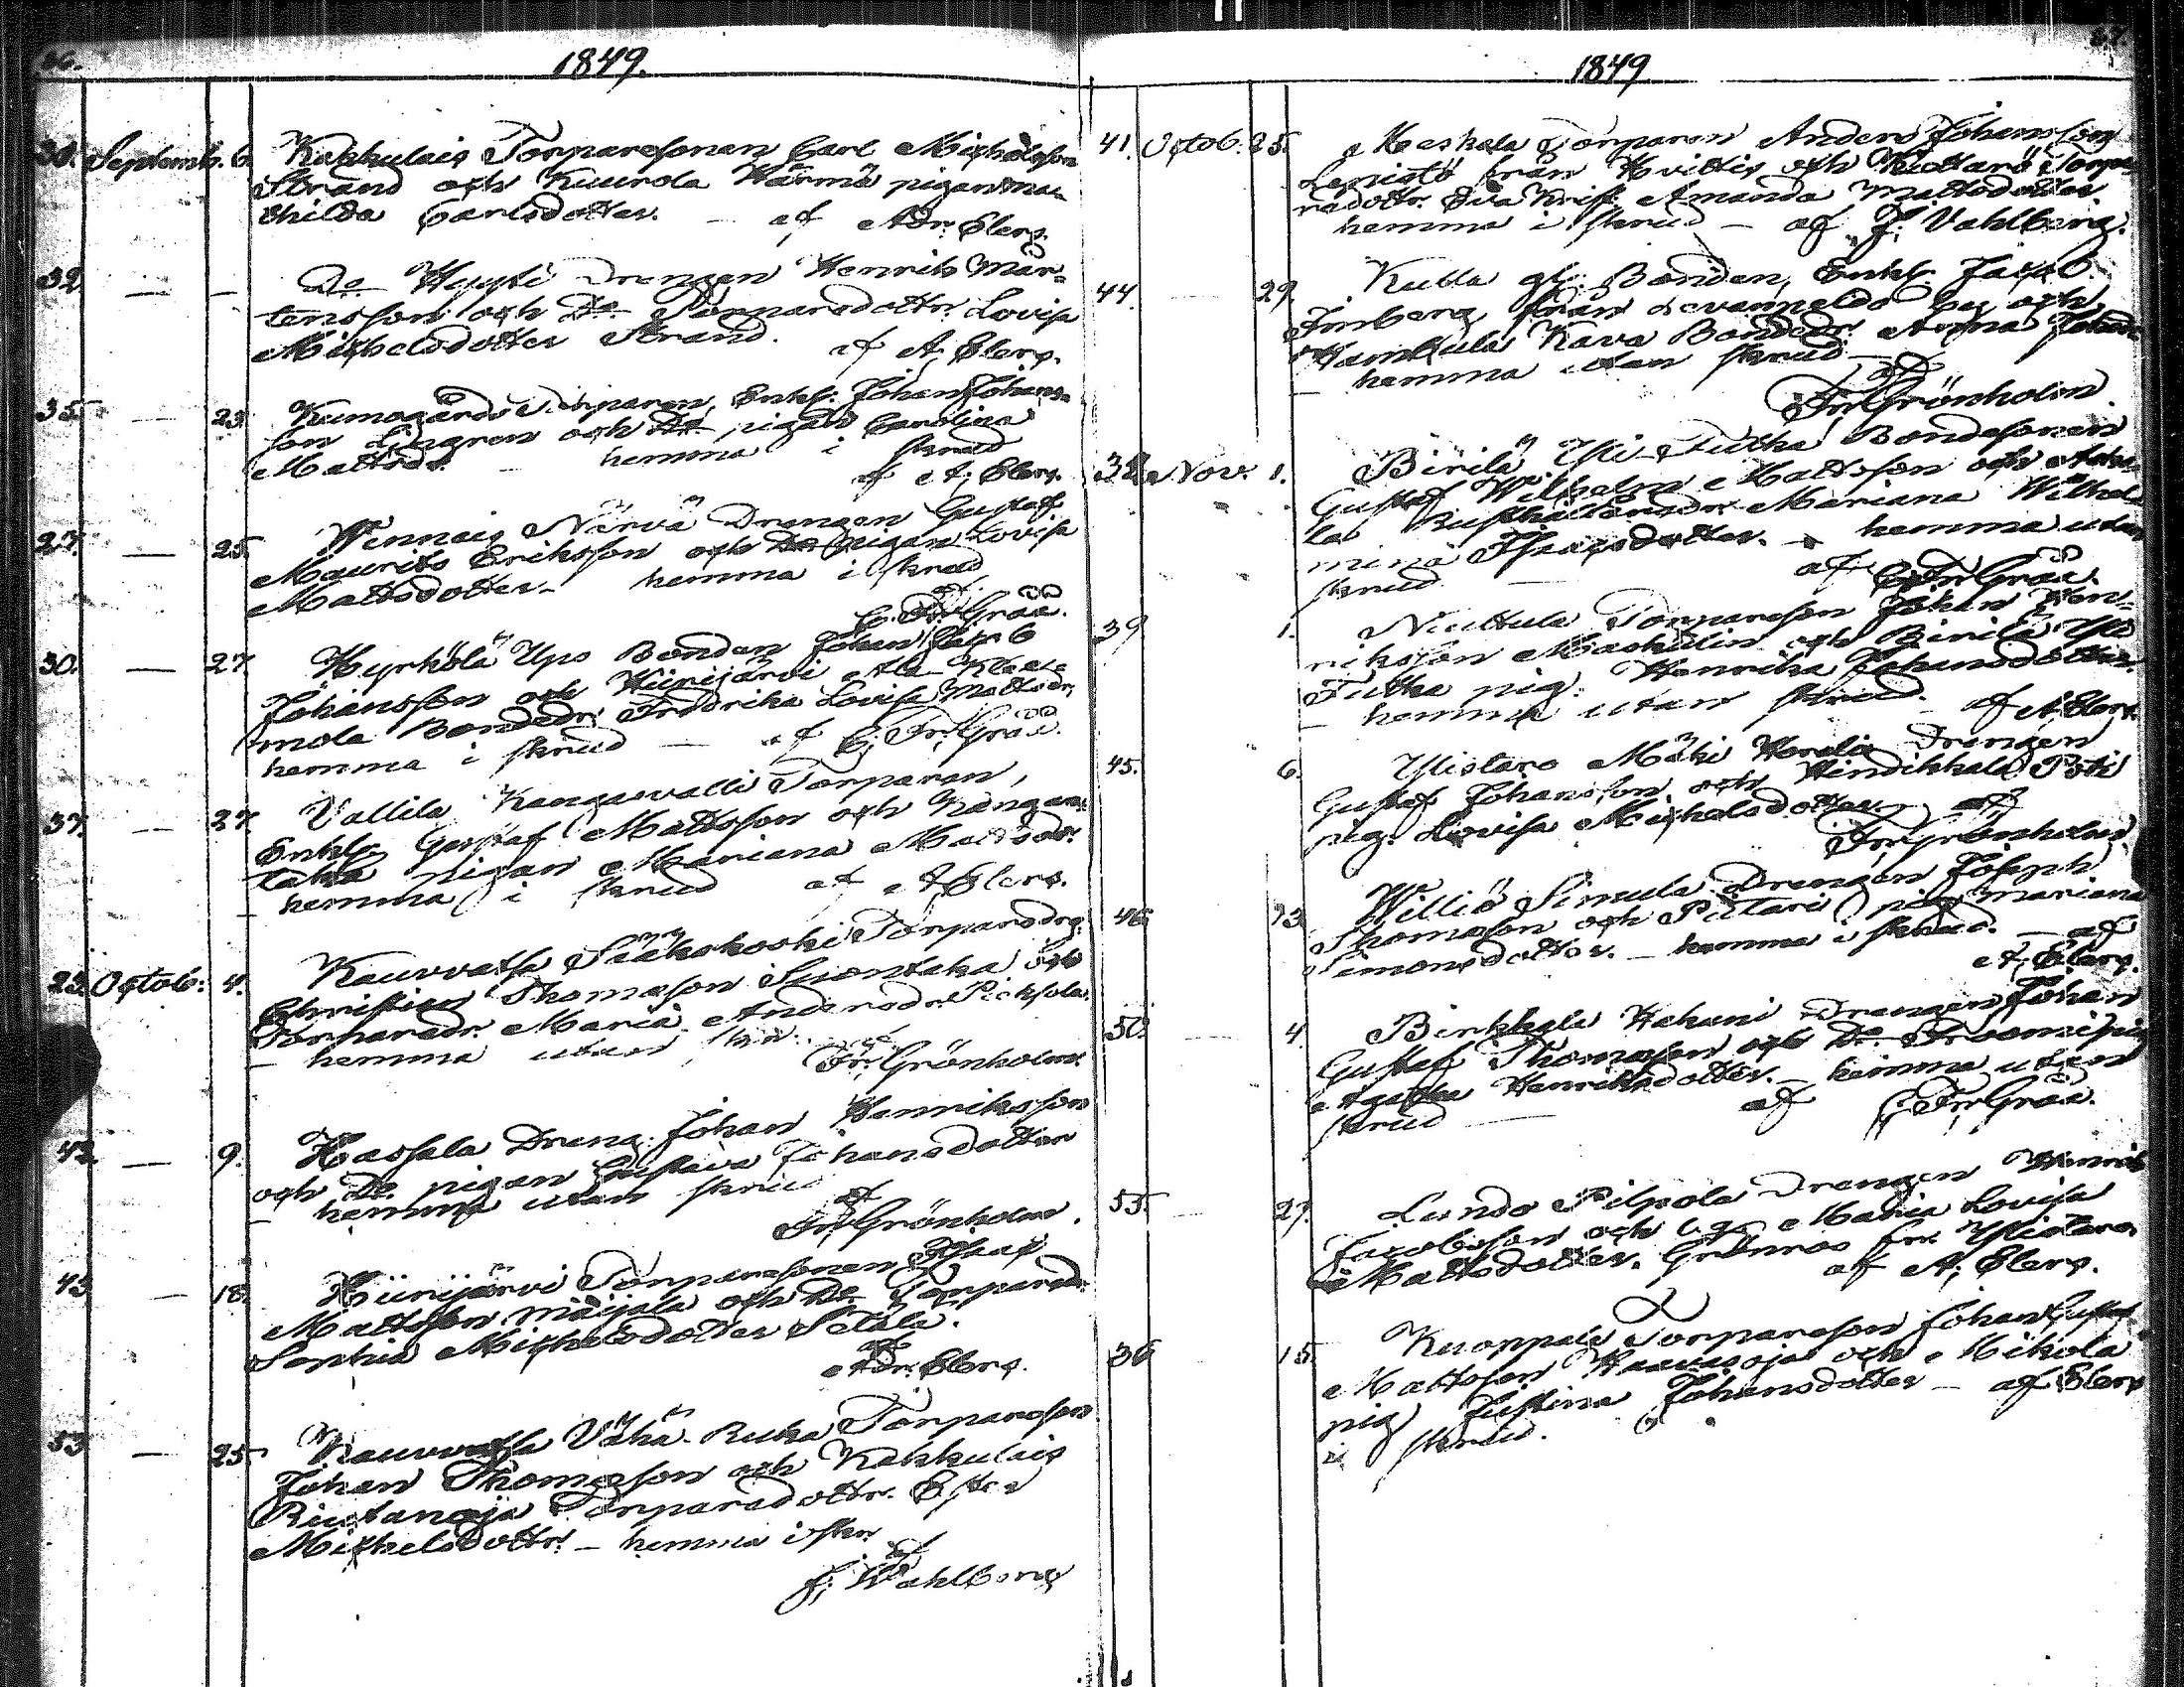 66.
1849.
30. Septemb. 6. Kakkulais Torparesonen Carl Michelsson
Strand och Kuurola Wärmä pigan Ma-
thilda Carlsdotter. — af Adr. Elers.
32 — — Do Hyysti Drengen Henrik Mår-
tensson och Do Torparedottr. Lovisa
Michelsdotter Strand. af A. Elers.
35 — 23. Kumogårds Torparen, Enkl. Johan Johans-
son Lingren och Do pigan Carolina
Mattsdr. — hemma i skrud
af A. Elers.
27. — 25. Wennais Närvä Drengen Gustaf
Maurits Eriksson och Do pigan Lovisa
Mattsdotter. — hemma i skrud
af
C. Fr. Gråå.
30. — 27. Hyrkölä Upo Bonden Johan Jacob
Johansson och Hiirijärvi Ala
mola Bondedr. Fredrika Lovisa Mattsdr.
hemma i skrud — af C. Fr. Gråå.
37. — 27. Vallila Kangasvalli Torparen,
Enkl. Gustaf Mattsson och
pigan Mariana Mattsdr.
— hemma i skrud af A. Elers.
23. Octob: 4. Kauvatsa Sääkskoski Torparedrg.
Christian Thomasson Suontaka och
Torparedr. Maria Andersdr. Pieksola
— hemma utan skr. af
Fr. Grönholm.
42. — 9. Hassala Dreng. Johan Henriksson
och Do pigan Gustava Johansdotter
— hemma utan skrud
af
Fr. Grönholm.
43 — 18. Hiirijärvi Torparesonen Isaac
Mattsson Maijala och Do Torparedr.
Sophia Michelsdotter Setälä.
af
Adr. Elers.
53 — 25. Kauvatsa Vähä-Ruka Torpareson
Johan Thomasson och Kakkulais
Riutanoja Torparedottr. Ester
Michelsdottr. — hemma i skr.
af
J. Wahlberg
67.
1849
41. Octob. 25. Meskala Torparen Anders Johansson
Lenistö från Hvittis och Kuttarö Torpa-
redottr. Eva Krist. Amanda Mattsdotter
hemma i skrud — af J. Vahlberg.
44. — 29. Kulla gl. Bonden, Enkl. Jacob
Imberg från Levanpelds by och
Kava Bondedr. Anna
— hemma utan skrud —
af
Fr. Grönholm.
32 Nov. 1. Birilä Yli-Tutka Bondesonen
Gustaf Wilhelm Mattsson och
Rusthållaredr. Mariana Wilhel-
mina Isaacsdotter. — hemma utan
skrud — af C. Fr. Gråå.
39 1. Niuttula Torpareson Johan Hen-
riksson Maskulin och Birilä Yli
Tutka pig. Henrika Johansdotter
— hemma utan skrud. af A. Elers.
45. 6. Ylistaro Mäki Drengen
Gustaf Johansson och Hindikkala
pig. Lovisa Michelsdotter. — af
Fr. Grönholm.
46 — 13. Williö Simula Drengen Joseph
Thomasson och Pitari pig. Mariana
Simonsdotter. — hemma i skrud. — af
A. Elers.
50. — 4 Birkkala Hakuni Drengen Johan
Gustaf Thomasson och Do. pig
Agatha Henriksdotter. — hemma utan
skrud — af C. Fr. Gråå.
55. — 29. Lundo Pilpola Drengen Henrik
Jacobsson och Maria Lovisa
Mattsdotter. Grönroos fr. Ylistaro
af A. Elers.
36 15. Knoppala Torpareson Johan Gustaf
Mattsson Haavasoja och Mikola
pig Justina Johansdotter — af Elers
i skrud.